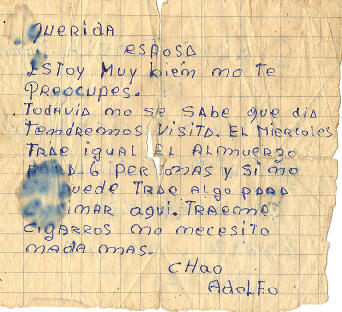 Querida
esposa
Estoy muy bien no te
preocupes.
Todavia no se sabe que dia
tendremos visita. El Miercoles
trae igual el almuerzo
6 personas y si no
puede trae algo para
aqui. Traeme
cigarros no necesito
nada mas.
Chao
Adolfo